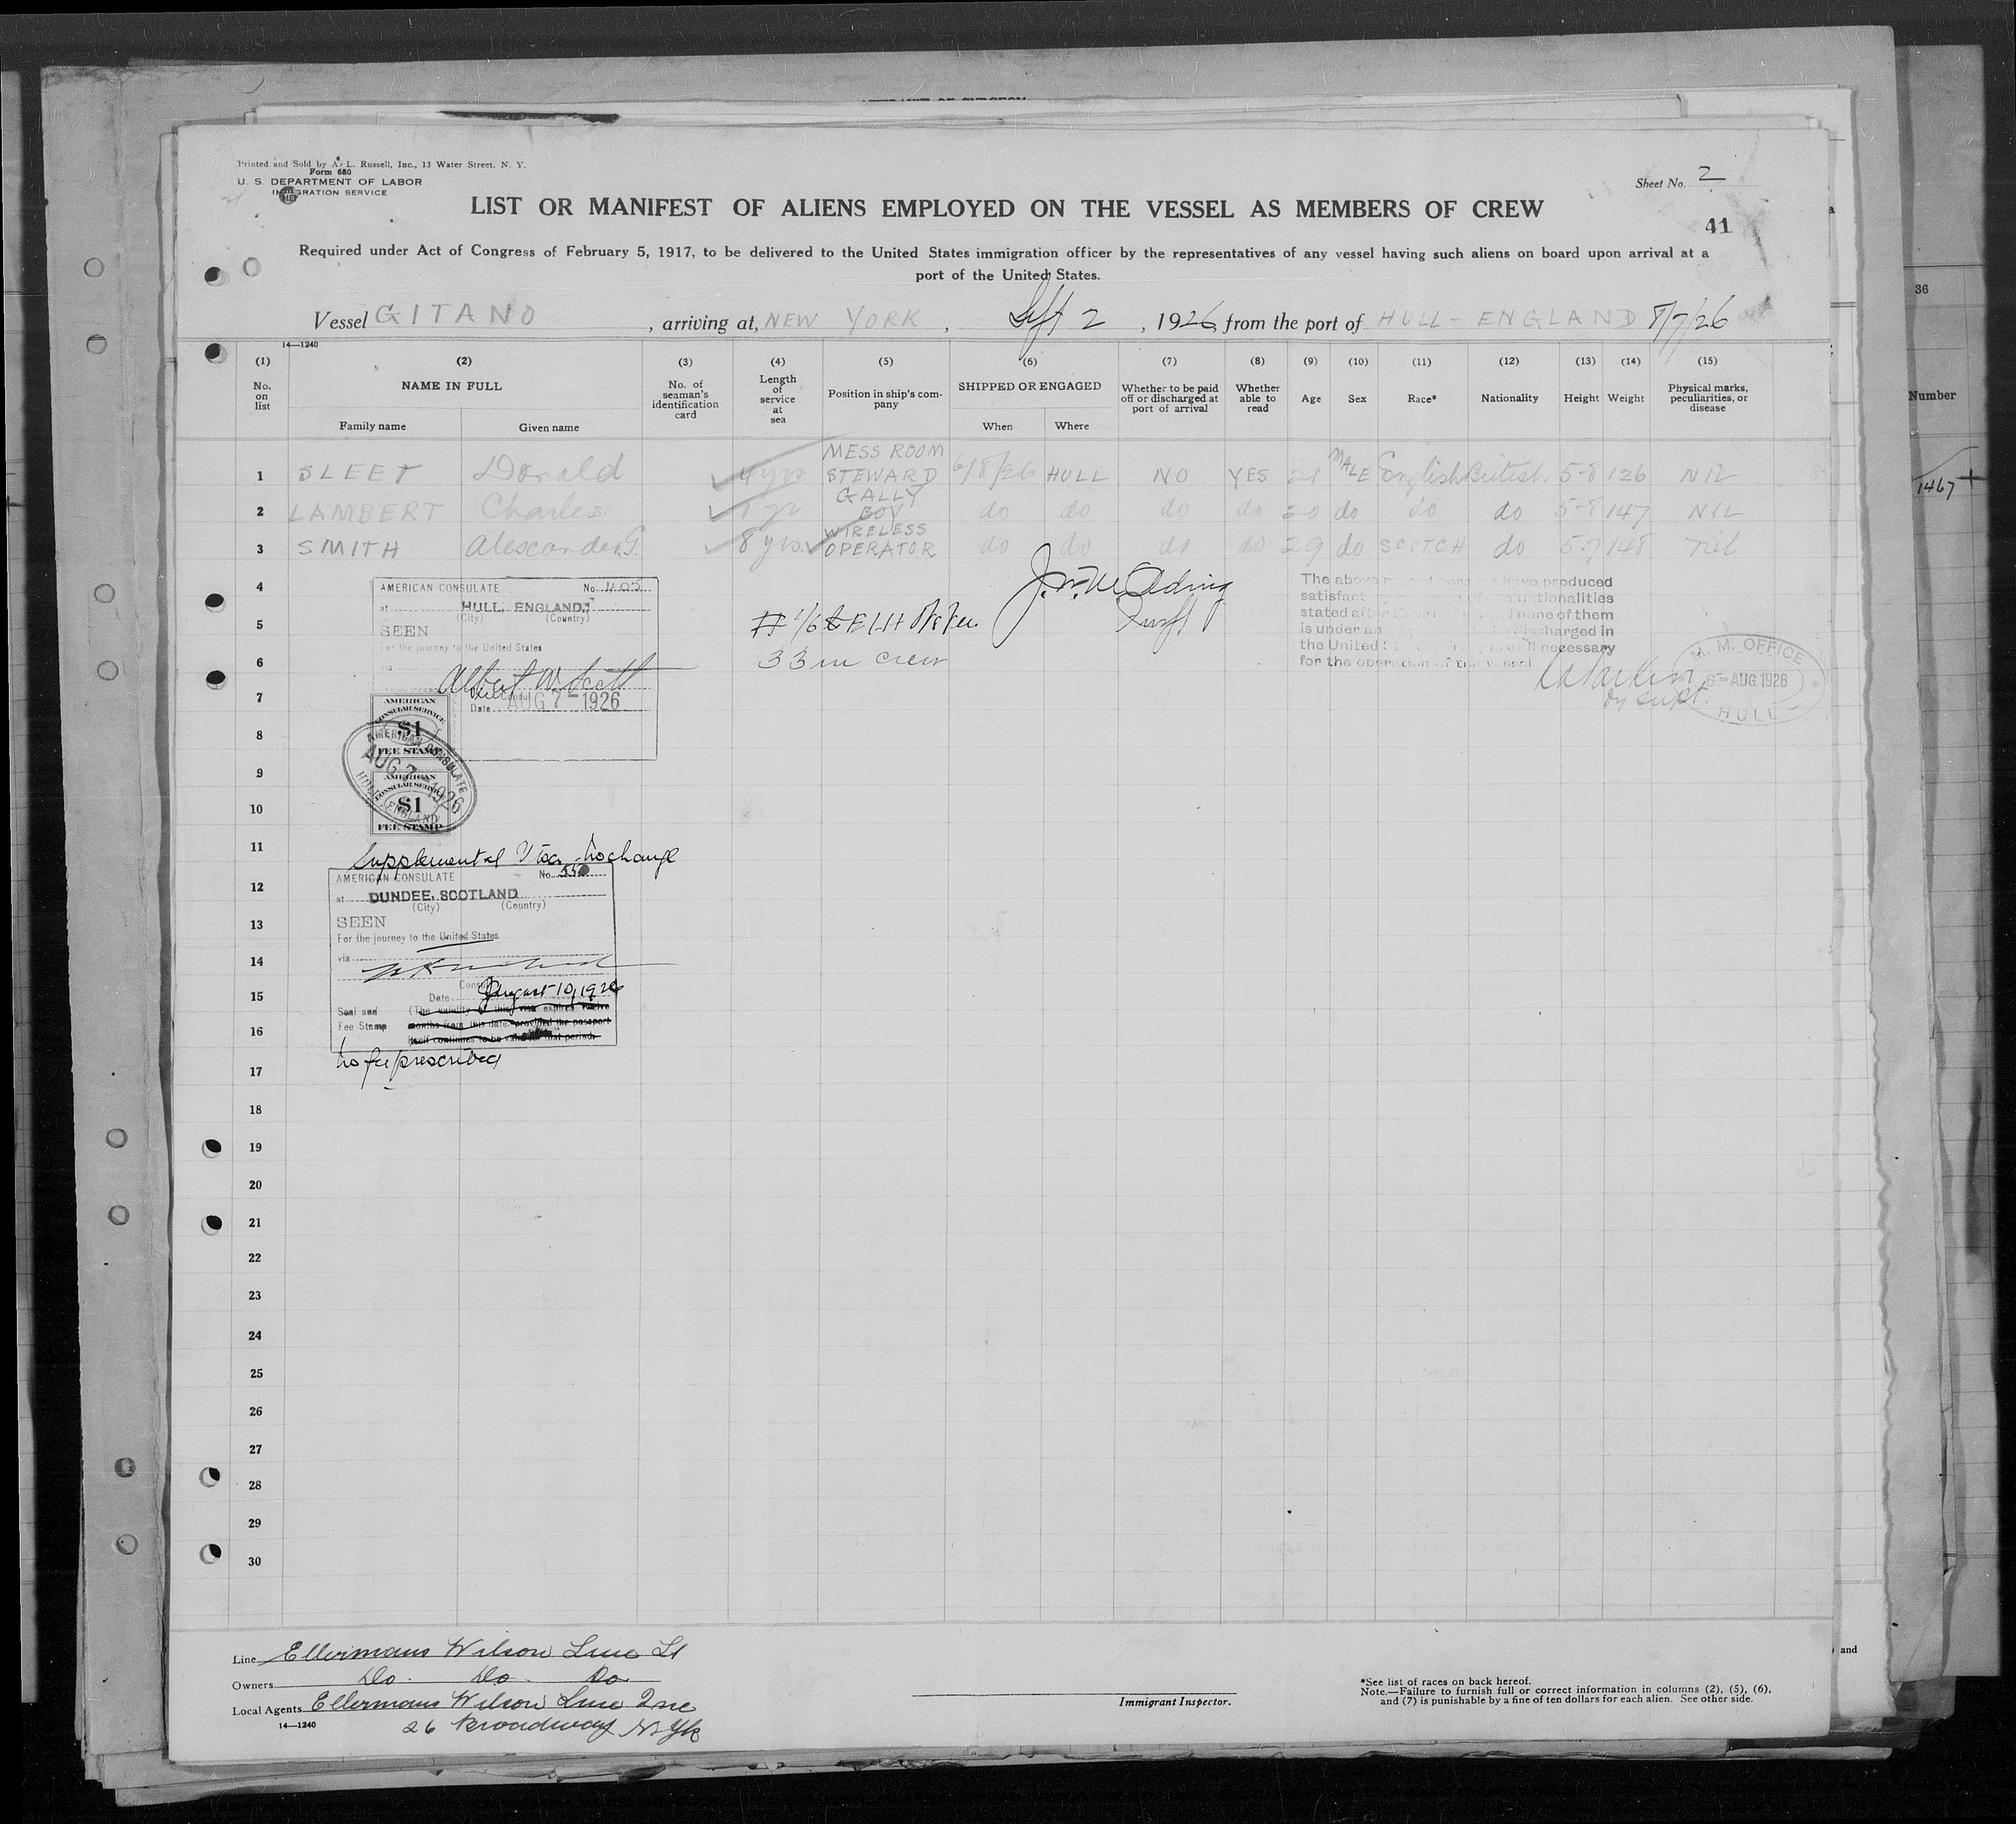 Printed and Sold by A. L. Russell, Inc., 13 Water Street, N. Y.
Form 680
U. S. DEPARTMENT OF LABOR
IMMIGRATION SERVICE
Sheet No. 2
LIST OR MANIFEST OF ALIENS EMPLOYED ON THE VESSEL AS MEMBERS OF CREW
41
Required under Act of Congress of February 5, 1917, to be delivered to the United States immigration officer by the representatives of any vessel having such aliens on board upon arrival at a
port of the United States.
Vessel GITANO, arriving at, NEW YORK, Sept 2, 1926, from the port of HULL - ENGLAND 8/7/26
14—1240
(1) No. on list
(2) NAME IN FULL
Family name Given name
(3) No. of seaman's identification card
(4) Length of service at sea
(5) Position in ship's company
(6) SHIPPED OR ENGAGED
When Where
(7) Whether to be paid off or discharged at port of arrival
(8) Whether able to read
(9) Age
(10) Sex
(11) Race*
(12) Nationality
(13) Height
(14) Weight
(15) Physical marks, peculiarities, or disease
1 SLEET Donald 4 yrs MESS ROOM STEWARD 6/8/26 HULL NO YES 21 MALE English British 5-8 126 NIL
2 LAMBERT Charles 1 yr GALLY BOY do do do do 20 do do do 5-8 147 NIL
3 SMITH Alexander G. 8 yrs. WIRELESS OPERATOR do do do do 29 do SCOTCH do 5-7 148 nil
4
5
6
7
8
9
10
11
12
13
14
15
16
17
18
19
20
21
22
23
24
25
26
27
28
29
30
AMERICAN CONSULATE No. 1405
at HULL, ENGLAND.
(City) (Country)
SEEN
For the journey to the United States
via
Albert W. Scott
Date AUG 7 - 1926
AMERICAN
CONSULAR SERVICE
$1
FEE STAMP
AMERICAN CONSULATE
AUG 7 - 1926
HULL, ENGLAND
AMERICAN
CONSULAR SERVICE
$1
FEE STAMP
33 in crew
The above named persons have produced
satisfact of nationalities
stated and none of them
is under discharged in
the United necessary
for the operation of the vessel
M. M. OFFICE
6 - AUG. 1926
HULL
Supplemental Visa No charge
AMERICAN CONSULATE No. 550
at DUNDEE, SCOTLAND
(City) (Country)
SEEN
For the journey to the United States
via
Consul
Date August 10, 1926
Seal and (The validity of this visa expires twelve
Fee Stamp months from this date provided the passport
itself continues to be valid for that period)
No fee prescribed
Line Ellermans Wilson Line Lt
Owners Do. Do Do
Local Agents Ellermans Wilson Line Inc
26 Broadway N Yk
14—1240
Immigrant Inspector.
*See list of races on back hereof.
Note.—Failure to furnish full or correct information in columns (2), (5), (6),
and (7) is punishable by a fine of ten dollars for each alien. See other side.
36
Number
1467
and